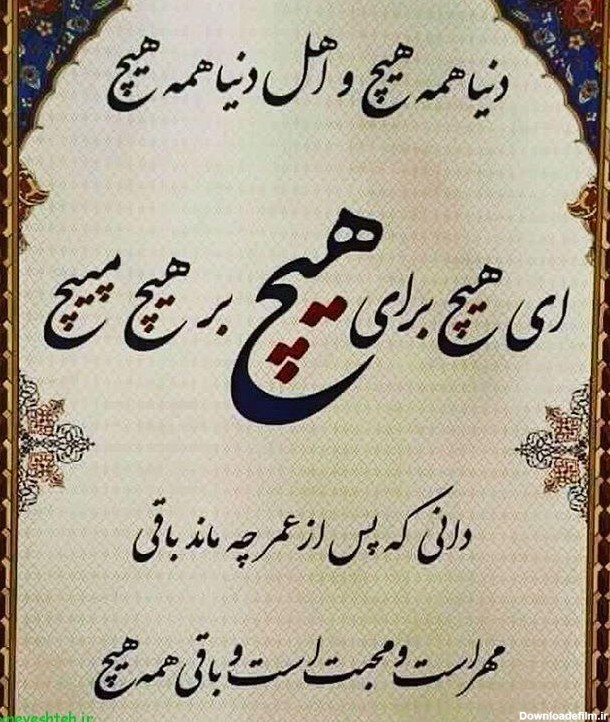 دنیا همه هیچ و اهل دنیا همه هیچ
ای هیچ برای هیچ بر هیچ مپیچ
دانی که پس از عمر چه ماند باقی
مهر است و محبت است و باقی همه هیچ
neveshteh.ir
www.Downloadefilm.ir